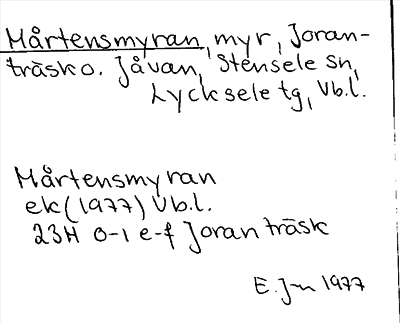 Mårtensmyran, myr, Joran-
träsk o. Jåvan, Stensele sn,
Lycksele tg, Vb.l.
Mårtensmyran
ek (1977) Vb.l.
23H 0-1 e-f Joranträsk
E. J-n 1977